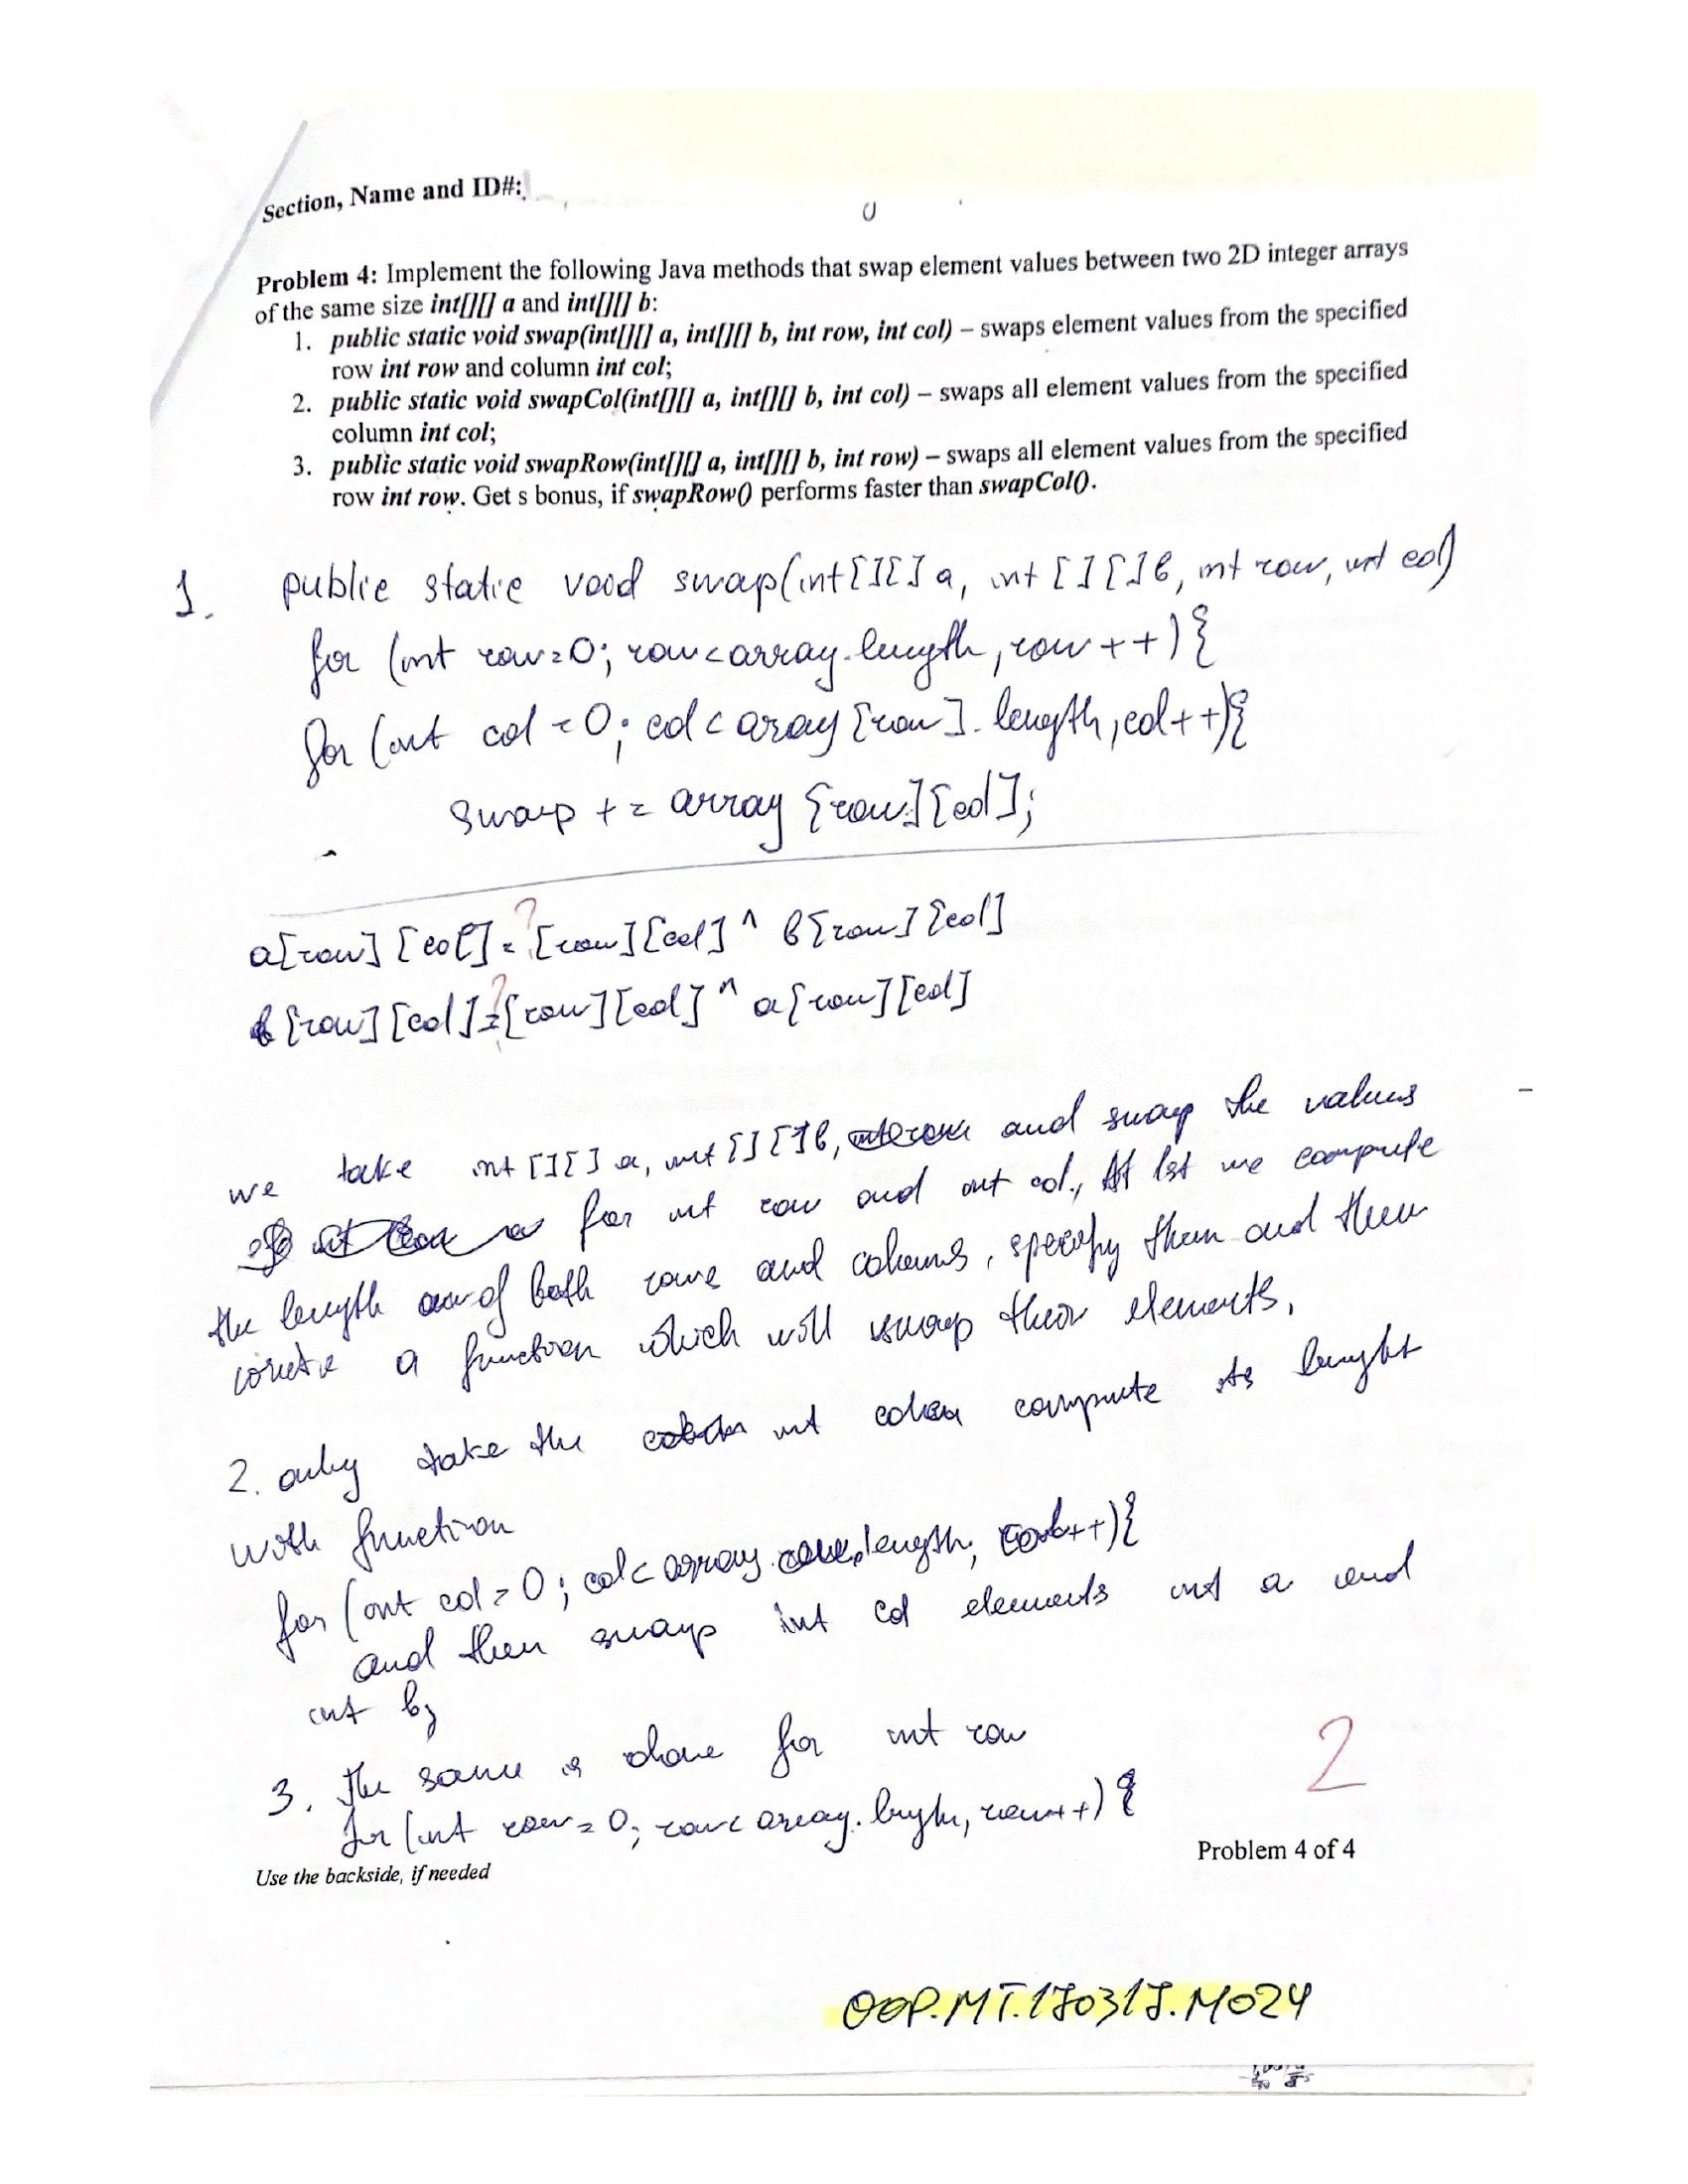 Section, Name and ID#:
Problem 4: Implement the following Java methods that swap element values between two 2D integer arrays
of the same size int[][] a and int[][] b:
1. public static void swap(int[][] a, int[][] b, int row, int col) – swaps element values from the specified
row int row and column int col;
2. public static void swapCol(int[][] a, int[][] b, int col) – swaps all element values from the specified
column int col;
3. public static void swapRow(int[][] a, int[][] b, int row) – swaps all element values from the specified
row int row. Get s bonus, if swapRow() performs faster than swapCol().
1. public static void swap(int[][] a, int [][]b, int row, int col)
for (int row=0; row<array.length, row++){
for (int col =0; col < array [row]. length, col++){
swap += array [row][col];
a[row] [col] = [row][col] ^ b[row] [col]
b[row] [col] = [row][col] ^ a[row][col]
we take int [][] a, int [][]b, and swap the values
for int row and int col., At 1st we compute
the length of both rows and columns, specify them and then
a function which will swap their elements.
2. only take the int compute its lenght
with function
for (int col=0; col< array length,
and then swap int col elements int a and
int b;
3. the same is done for int row
for (int row=0; row< array. length, row++) {
2
Use the backside, if needed
Problem 4 of 4
OOP.MT.170317.M024